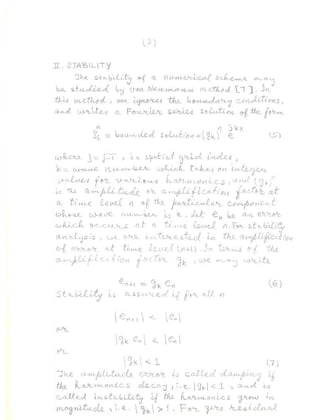 (3)
II. STABILITY
The stability of a numerical scheme may
be studied by von Neumann method [7]. In
this method, one ignores the boundary conditions,
and writes a Fourier series solution of the form
= bounded solution + (gₖ)ⁿ e^{Jkx} (5)
where J = √-1, i = spatial grid index,
k = wave number which takes on integer
values for various harmonics, and (gₖ)ⁿ
is the amplitude or amplification factor at
a time level n of the particular component
whose wave number is k. Let eₙ be an error
which occurs at a time level n. For stability
analysis, we are interested in the amplification
of error at time level (n+1). In terms of the
amplification factor gₖ, we may write
eₙ₊₁ = gₖ eₙ (6)
Stability is assured if for all n
|eₙ₊₁| < |eₙ|
or
|gₖ eₙ| < |eₙ|
or
|gₖ| < 1 (7)
The amplitude error is called damping if
the harmonics decay, i.e. |gₖ| < 1, and is
called instability if the harmonics grow in
magnitude, i.e. |gₖ| > 1. For zero residual